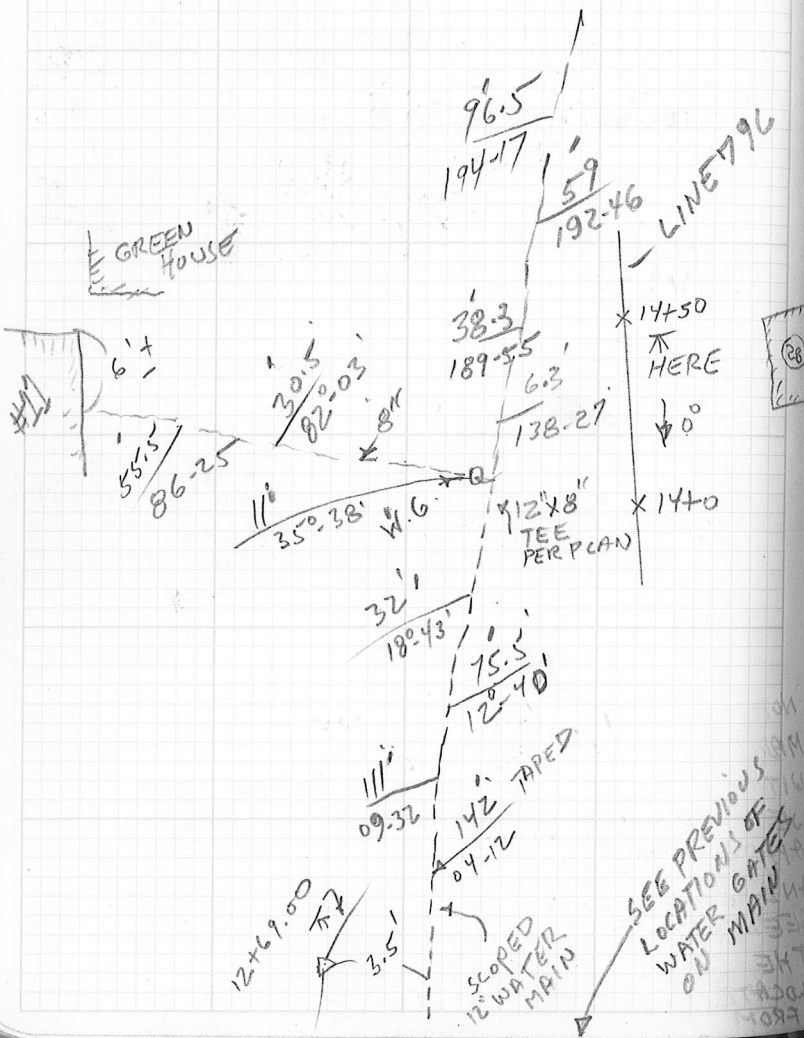 96.5'
194-17
59'
192-46
LINE
GREEN
HOUSE
38.3'
189-55
14+50
HERE
0°
6'±
30.5'
82°-03'
8"
6.3'
138-27'
55.5'
86-25
11'
35°-38'
W.G.
12"X8"
TEE
PER PLAN
14+0
32'
18°-43'
75.5'
12°-40'
111'
09-32
142' TAPED
04-12
12+69.00
3.5'
SCOPED
12" WATER
MAIN
SEE PREVIOUS
LOCATIONS OF
WATER GATES
ON MAIN